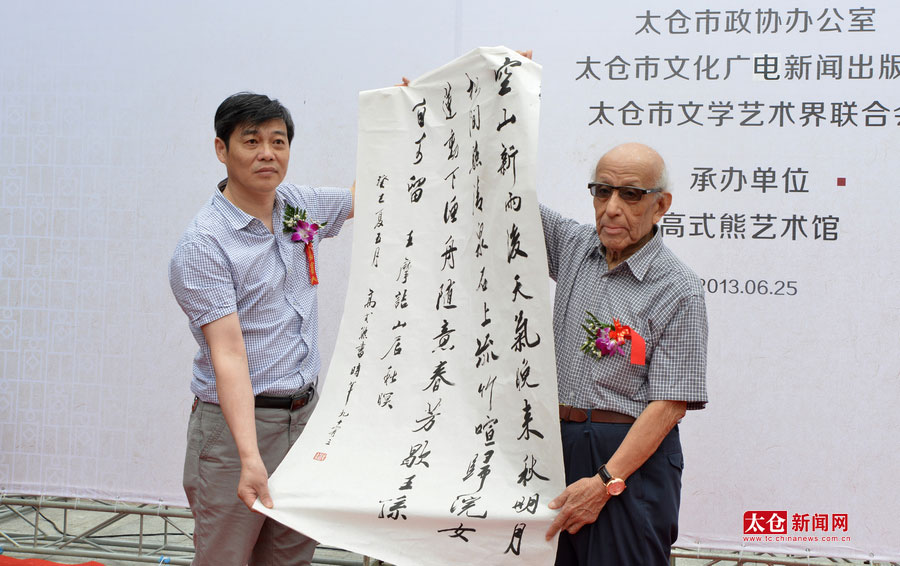 太仓市政协办公室
太仓市文化广电新闻出版
太仓市文学艺术界联合会
承办单位
高式熊艺术馆
2013.06.25
空山新雨後天氣晚来秋明月
松間照清泉石上流竹喧歸浣女
蓮動下漁舟随意春芳歇王孫
自可留 王摩詰山居秋暝
癸巳夏五月 高式熊書時年九十三
太仓新闻网
www.tc.chinanews.com.cn